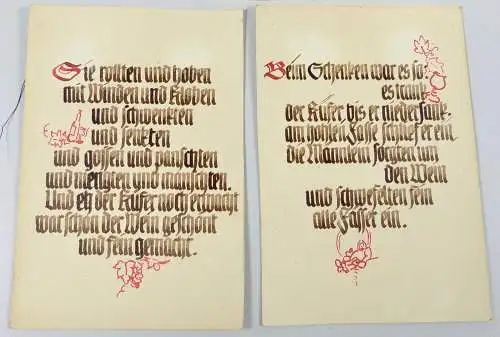 Sie rollten und hoben
mit Winden und Kloben
und schwenkten
und senkten
und gossen und panschten
und mengten und manschten.
Und eh der Küfer noch erwacht
war schon der Wein geschönt
und fein gemacht.
Beim Schenken war es so:
es trank
der Küfer bis er niedersank.
am hohlen Fasse schlief er ein
die Männlein sorgten um
den Wein
und schwefelten fein
alle Fässer ein.